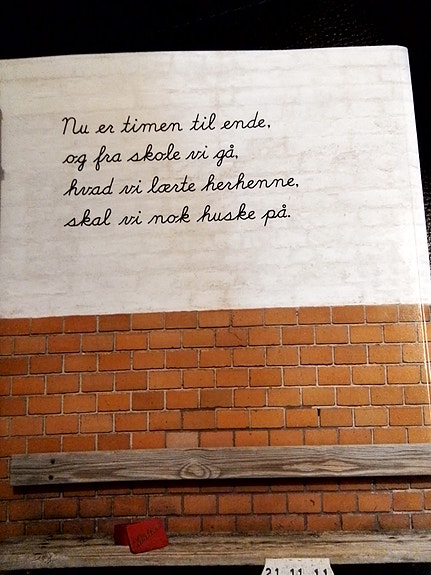 Nu er timen til ende,
og fra skole vi gå,
hvad vi lærte herhenne,
skal vi nok huske på.
21 11 11